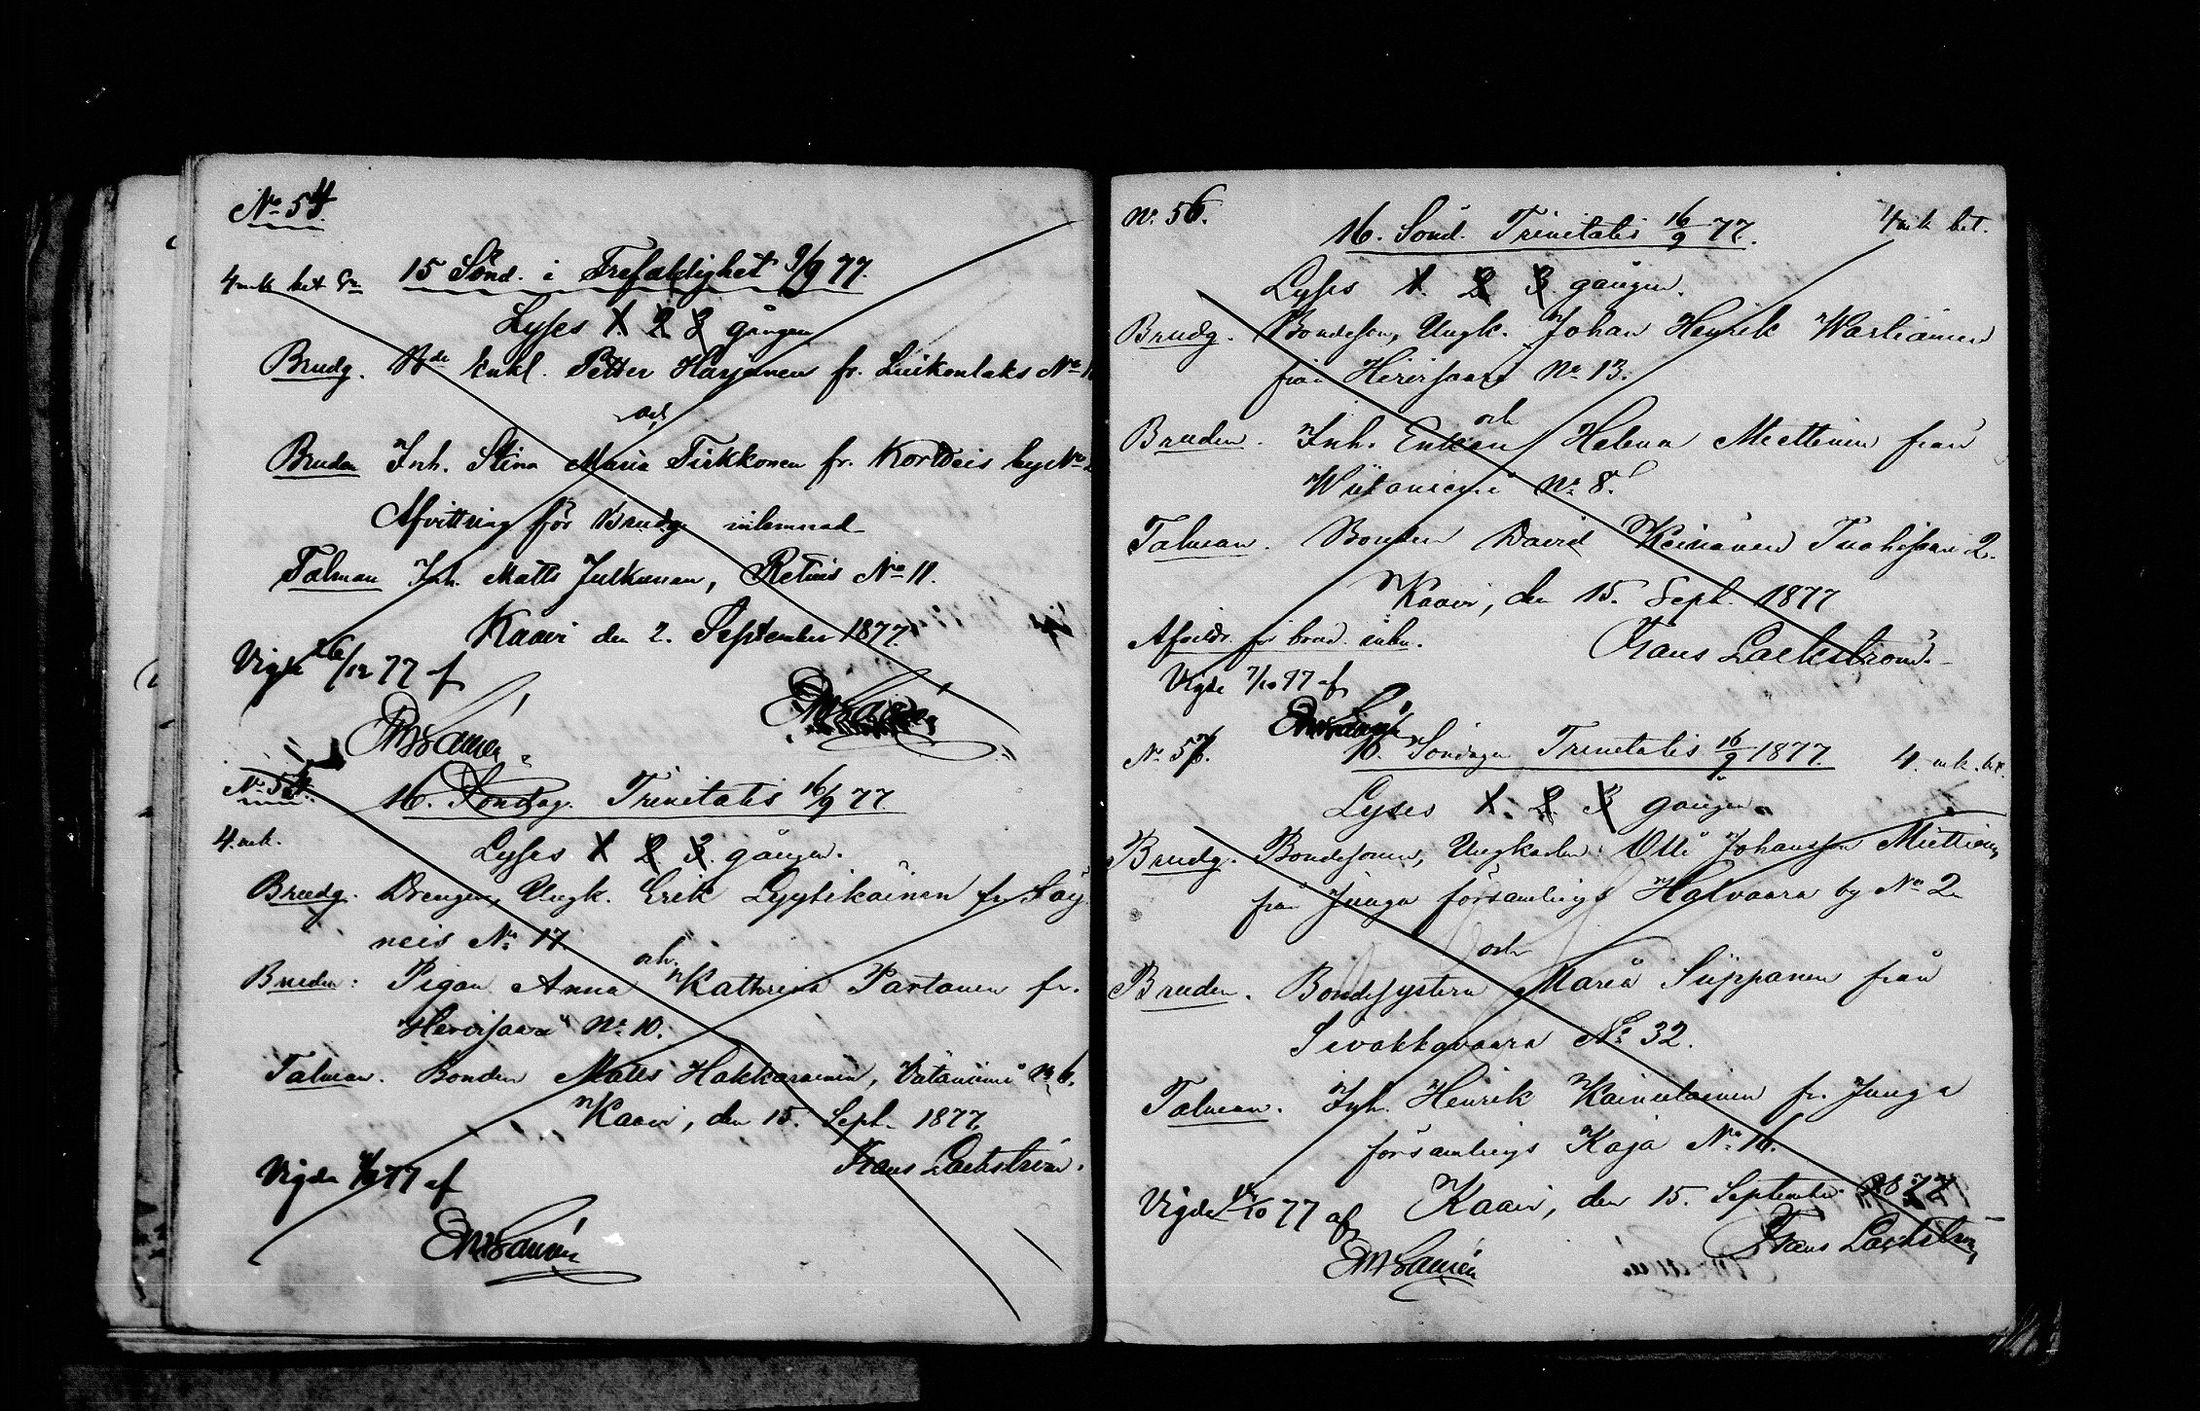 No 54.
15 Sönd. i Trefaldighet 9/9 77.
4 mk bet
Lyses 1. 2 3 gången
Brudg. Bde Enkl. Petter Harjunen fr. Luikonlaks No
och
Bruden Inh. Stina Maria Tirkkonen fr. Kortteis by No
Afvittring för Brudg. inlemnad
Talman Inh. Matts Julkunen, Retuis No 11.
Kaavi den 2. September 1877.
Vigde 26/12 77 af
No 55.
16. Söndag. Trinitatis 16/9 77
4 mk.
Lyses 1 2. 3. gången.
Brudg. Drengen, Ungk. Erik Lyytikäinen fr. Säy-
neis No 17.
och
Bruden: Pigan Anna Kathrina Partanen fr.
Hirvisaari No 10.
Talman. Bonden Matts Hakkarainen, Viitaniemi No 6.
Kaavi, den 15. Sept. 1877.
Vigda 77 af
Frans Lackström.
No. 56.
16. Sönd. Trinitatis 16/9 77.
4 mk bet.
Lyses 1. 2 3 gången.
Brudg. Bondeson, Ungk. Johan Henrik Wartiainen
från Hirvisaari No 13.
och
Bruden. Inh. Enkan Helena Miettinen från
Wiitaniemi No 8.
Talman. Bonden David Keinänen Tuohisaari 2.
Kaavi, den 15. Sept. 1877
Afvittr. för brud. inlm.
Frans Lackström.
Vigde 7/10 77 af
No. 57.
16. Söndagen Trinitatis 16/9 1877.
4. mk. bet.
Lyses 1. 2. 3 gången
Brudg. Bondesonen, Ungkarlen Olli Johansson Miettinen
från Juuga församlings Halvaara by No 2
och
Bruden. Bondesystern Maria Siippanen från
Sivakkavaara No 32.
Talman. Inh. Henrik Kainulainen fr. Juuga
församlings Kaja No 16.
Kaavi, den 15. September 1877
Vigde 77 af
Frans Lackström